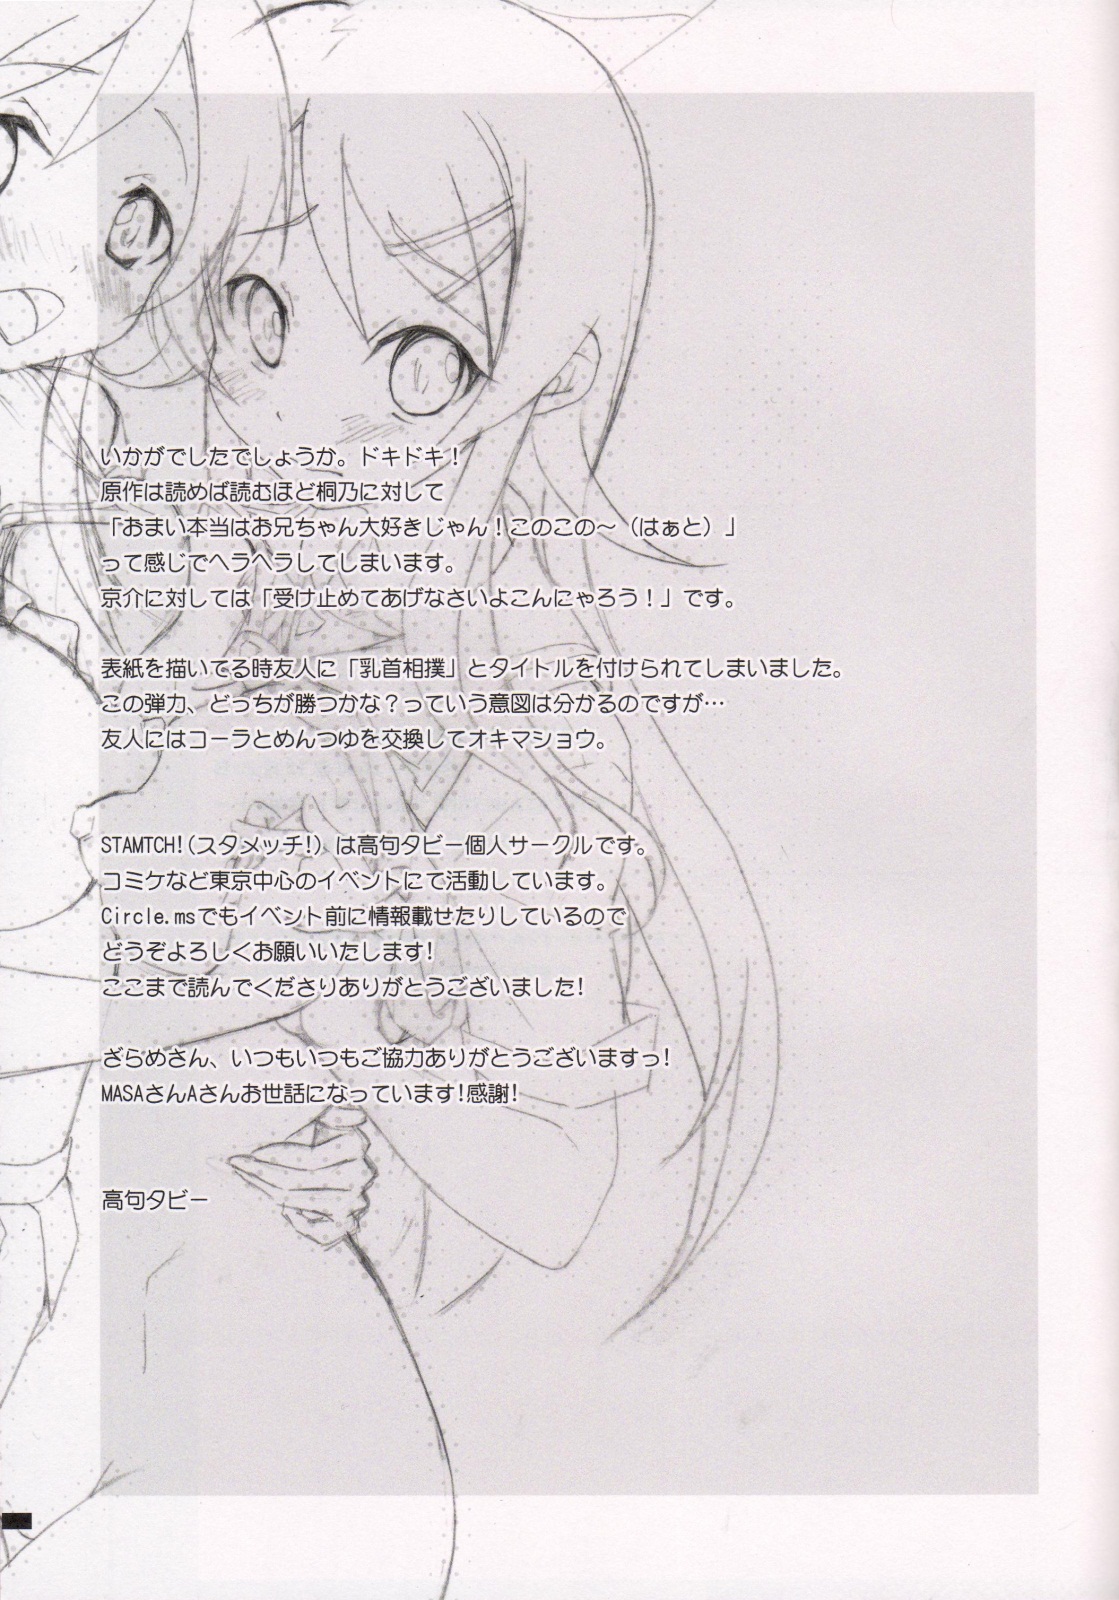 いかがでしたでしょうか。ドキドキ！
原作は読めば読むほど桐乃に対して
「おまい本当はお兄ちゃん大好きじゃん！このこの～（はぁと）」
って感じでヘラヘラしてしまいます。
京介に対しては「受け止めてあげなさいよこんにゃろう！」です。
表紙を描いてる時友人に「乳首相撲」とタイトルを付けられてしまいました。
この弾力、どっちが勝つかな？っていう意図は分かるのですが…
友人にはコーラとめんつゆを交換してオキマショウ。
STAMTCH!(スタメッチ!) は高句タビー個人サークルです。
コミケなど東京中心のイベントにて活動しています。
Circle.msでもイベント前に情報載せたりしているので
どうぞよろしくお願いいたします!
ここまで読んでくださりありがとうございました!
ざらめさん、いつもいつもご協力ありがとうございますっ!
MASAさんAさんお世話になっています!感謝!
高句タビー